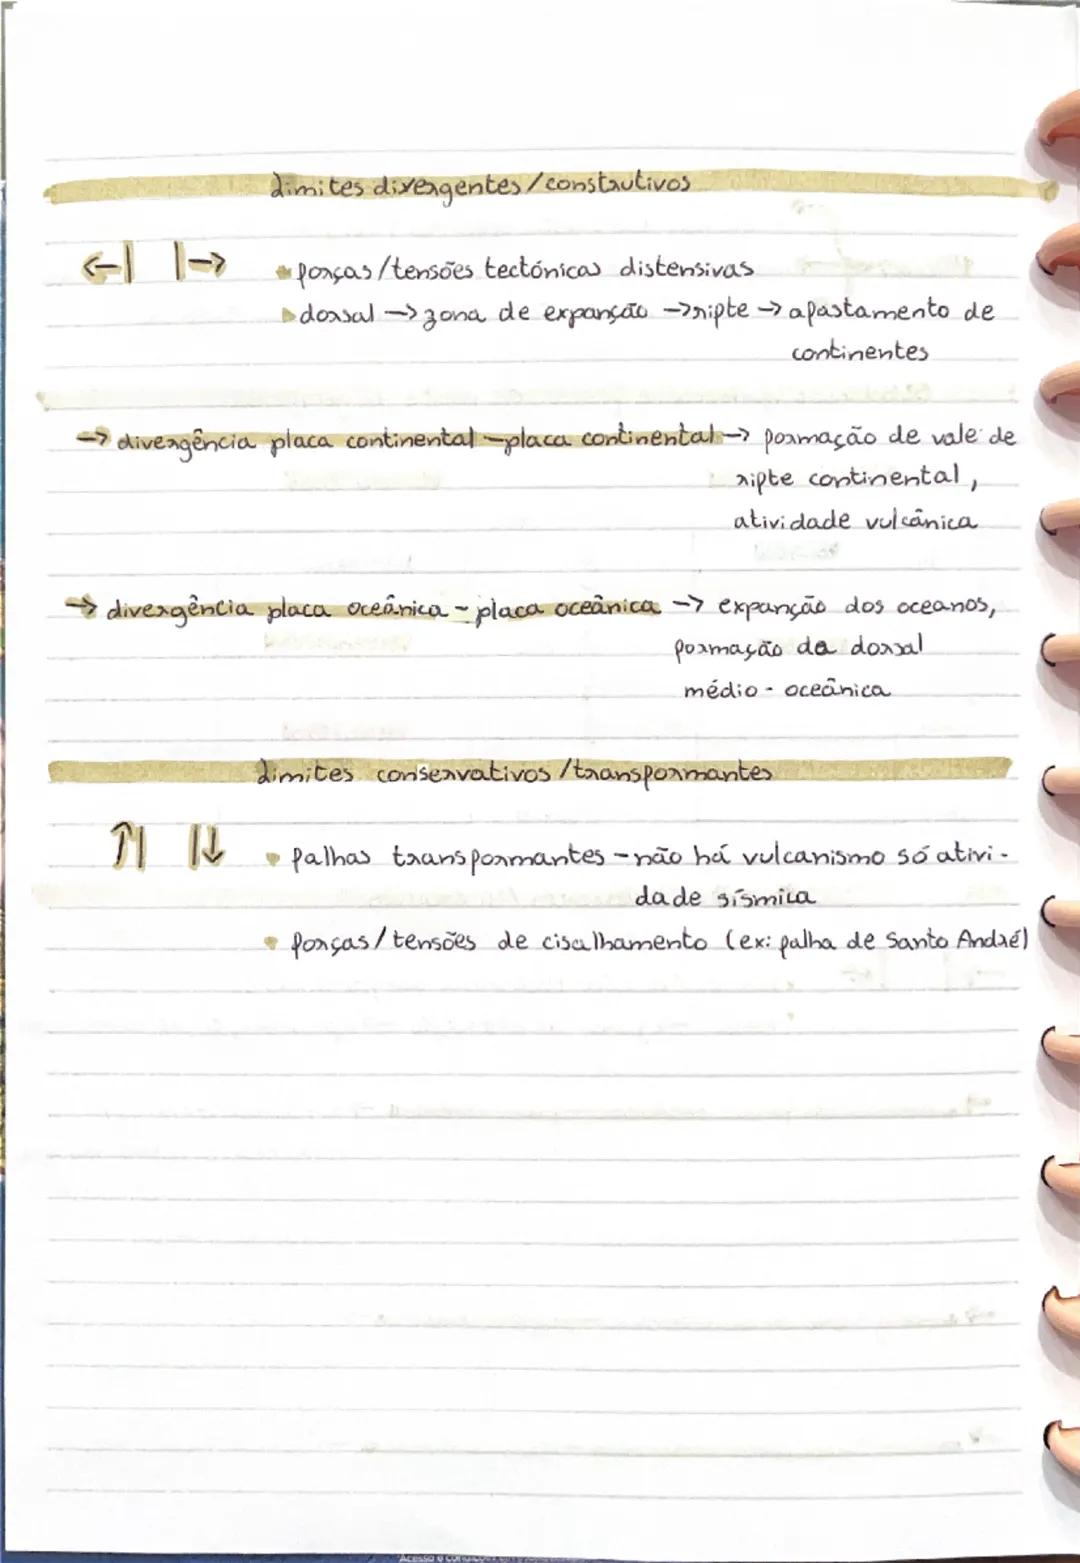 Limites divergentes/construtivos
←| |→
forças/tensões tectónicas distensivas
dorsal → zona de expanção → rifte → afastamento de
continentes
→ divergência placa continental - placa continental → formação de vale de
rifte continental,
atividade vulcânica
→ divergência placa oceânica - placa oceânica → expanção dos oceanos,
formação da dorsal
médio - oceânica
Limites conservativos/transformantes
↑| |↓
falhas transformantes - não há vulcanismo só ativi-
dade sísmica
forças/tensões de cisalhamento (ex: falha de Santo André)